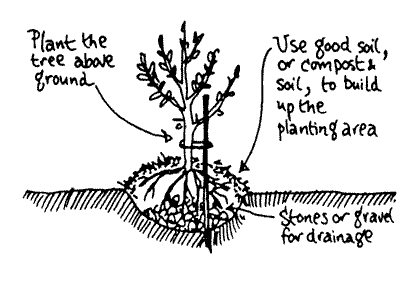 Plant the
tree above
ground
Use good soil,
or compost &
soil, to build
up the
planting area
Stones or gravel
for drainage